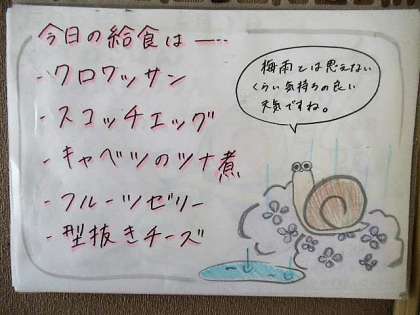 今日の給食は-----
-クロワッサン
-スコッチエッグ
-キャベツのツナ煮
-フルーツゼリー
-型抜きチーズ
梅雨とは思えない
くらい気持ちの良い
天気ですね。